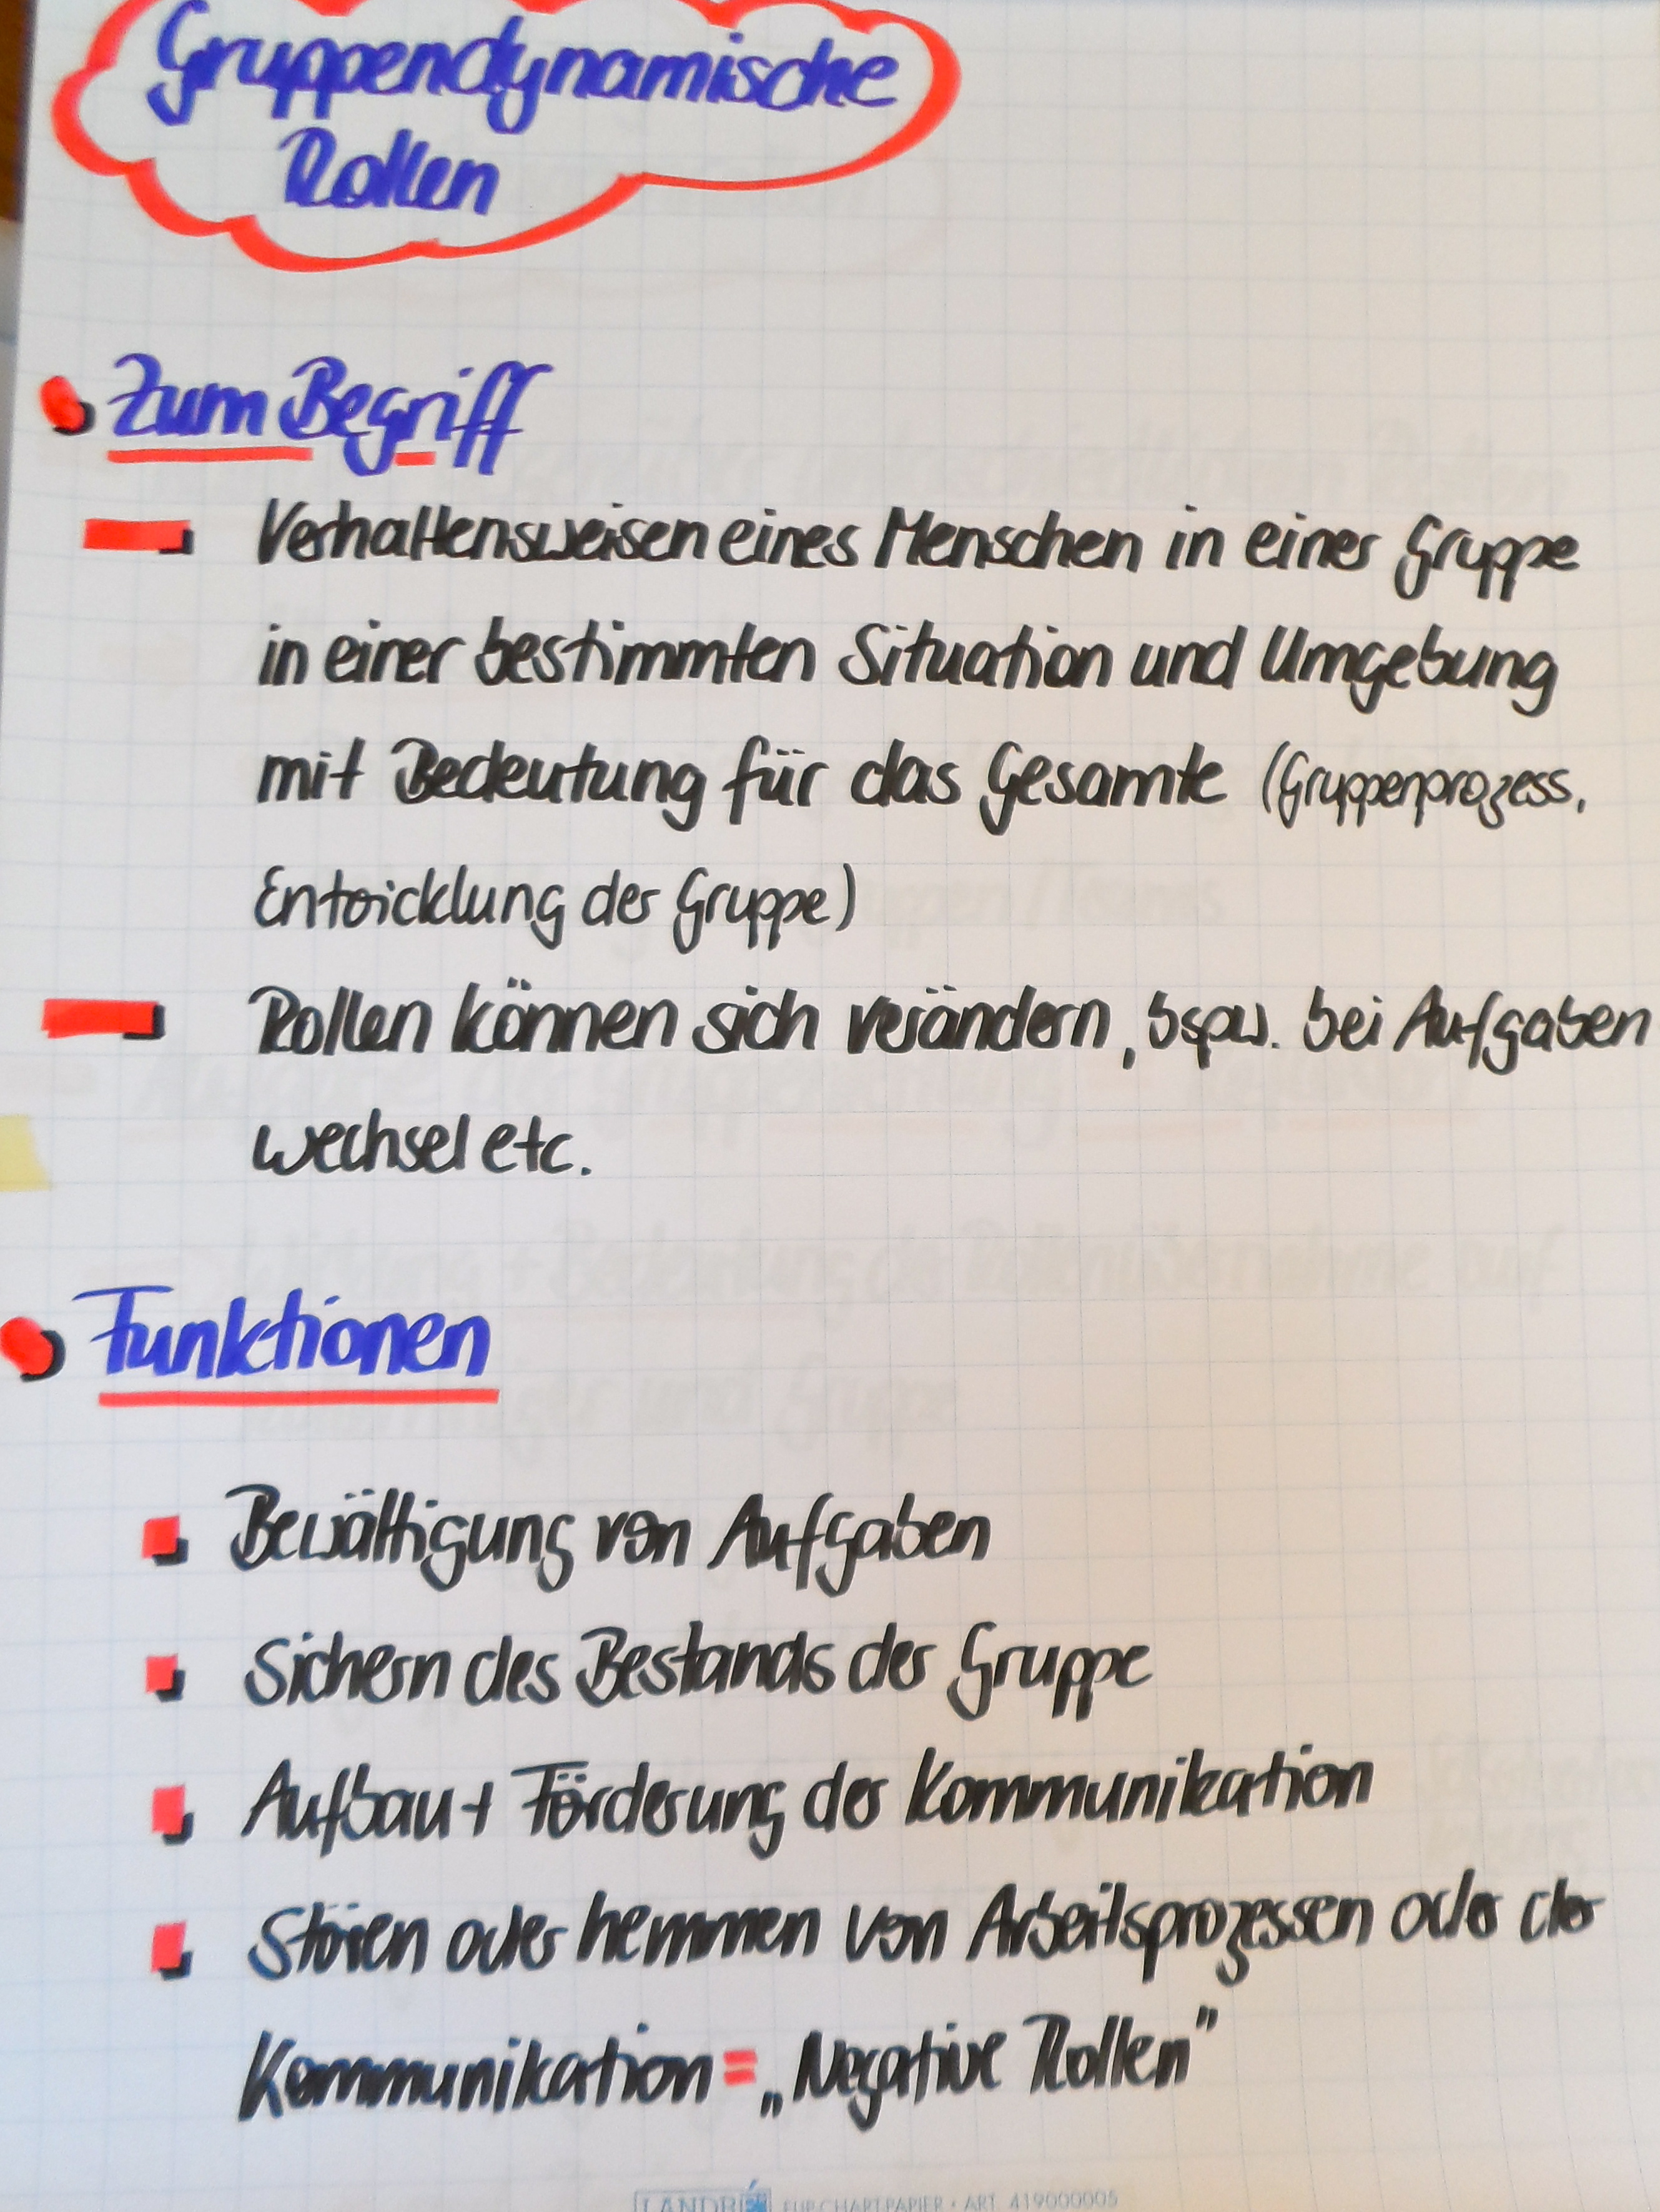 Gruppendynamische
Rollen
Zum Begriff
Verhaltensweisen eines Menschen in einer Gruppe
in einer bestimmten Situation und Umgebung
mit Bedeutung für das Gesamte (Gruppenprozess,
Entwicklung der Gruppe)
Rollen können sich verändern, bspw. bei Aufgaben
wechsel etc.
Funktionen
Bewältigung von Aufgaben
Sichern des Bestands der Gruppe
Aufbau + Förderung der Kommunikation
Stören oder hemmen von Arbeitsprozessen oder der
Kommunikation = „Negative Rollen"
LANDRÉ FLIPCHARTPAPIER • ART. 419000005